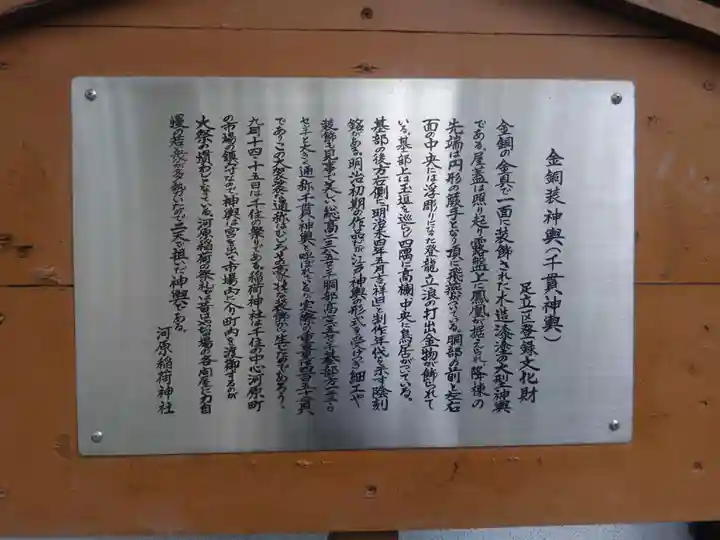 金銅装神輿(千貫神輿)
足立区登録文化財
金銅の金具で一面に装飾された木造漆塗の大型神輿
である。屋蓋は照り起り、露盤上に鳳凰が据えられ降棟の
先端は円形の蕨手となり頂に飛燕がついている。胴部の前と左右
面の中央には浮彫りになった登龍、立浪の打出金物が飾られて
いる。基部上は玉垣を巡らし四隅に高欄、中央に鳥居がついている。
基部の後方右側に「明治末四年五月吉祥旦」と制作年代を示す陰刻
銘がある。明治初期の作品だが江戸神輿の形式を受けつぎ細工や
装飾も見事で美しい。総高二三五センチ胴部高七五センチ基部方一三六
センチと大きく通称千貫神輿と呼ばれている。実際の重量は四百五十貫
でありこの装の通称はむしろ豪壮な装飾から生れたのであろう。
九月十四・十五日は千住の祭りである。稲荷神社は千住の中心河原町
の市場の鎮守なので神輿は宮を出て市場内に入り町内を渡御するのが
大祭の慣わしとなっている。河原稲荷の祭礼は昔は市場の各問屋に力自
慢の若い衆が多勢いたので二天が担いだ神輿である。
河原稲荷神社